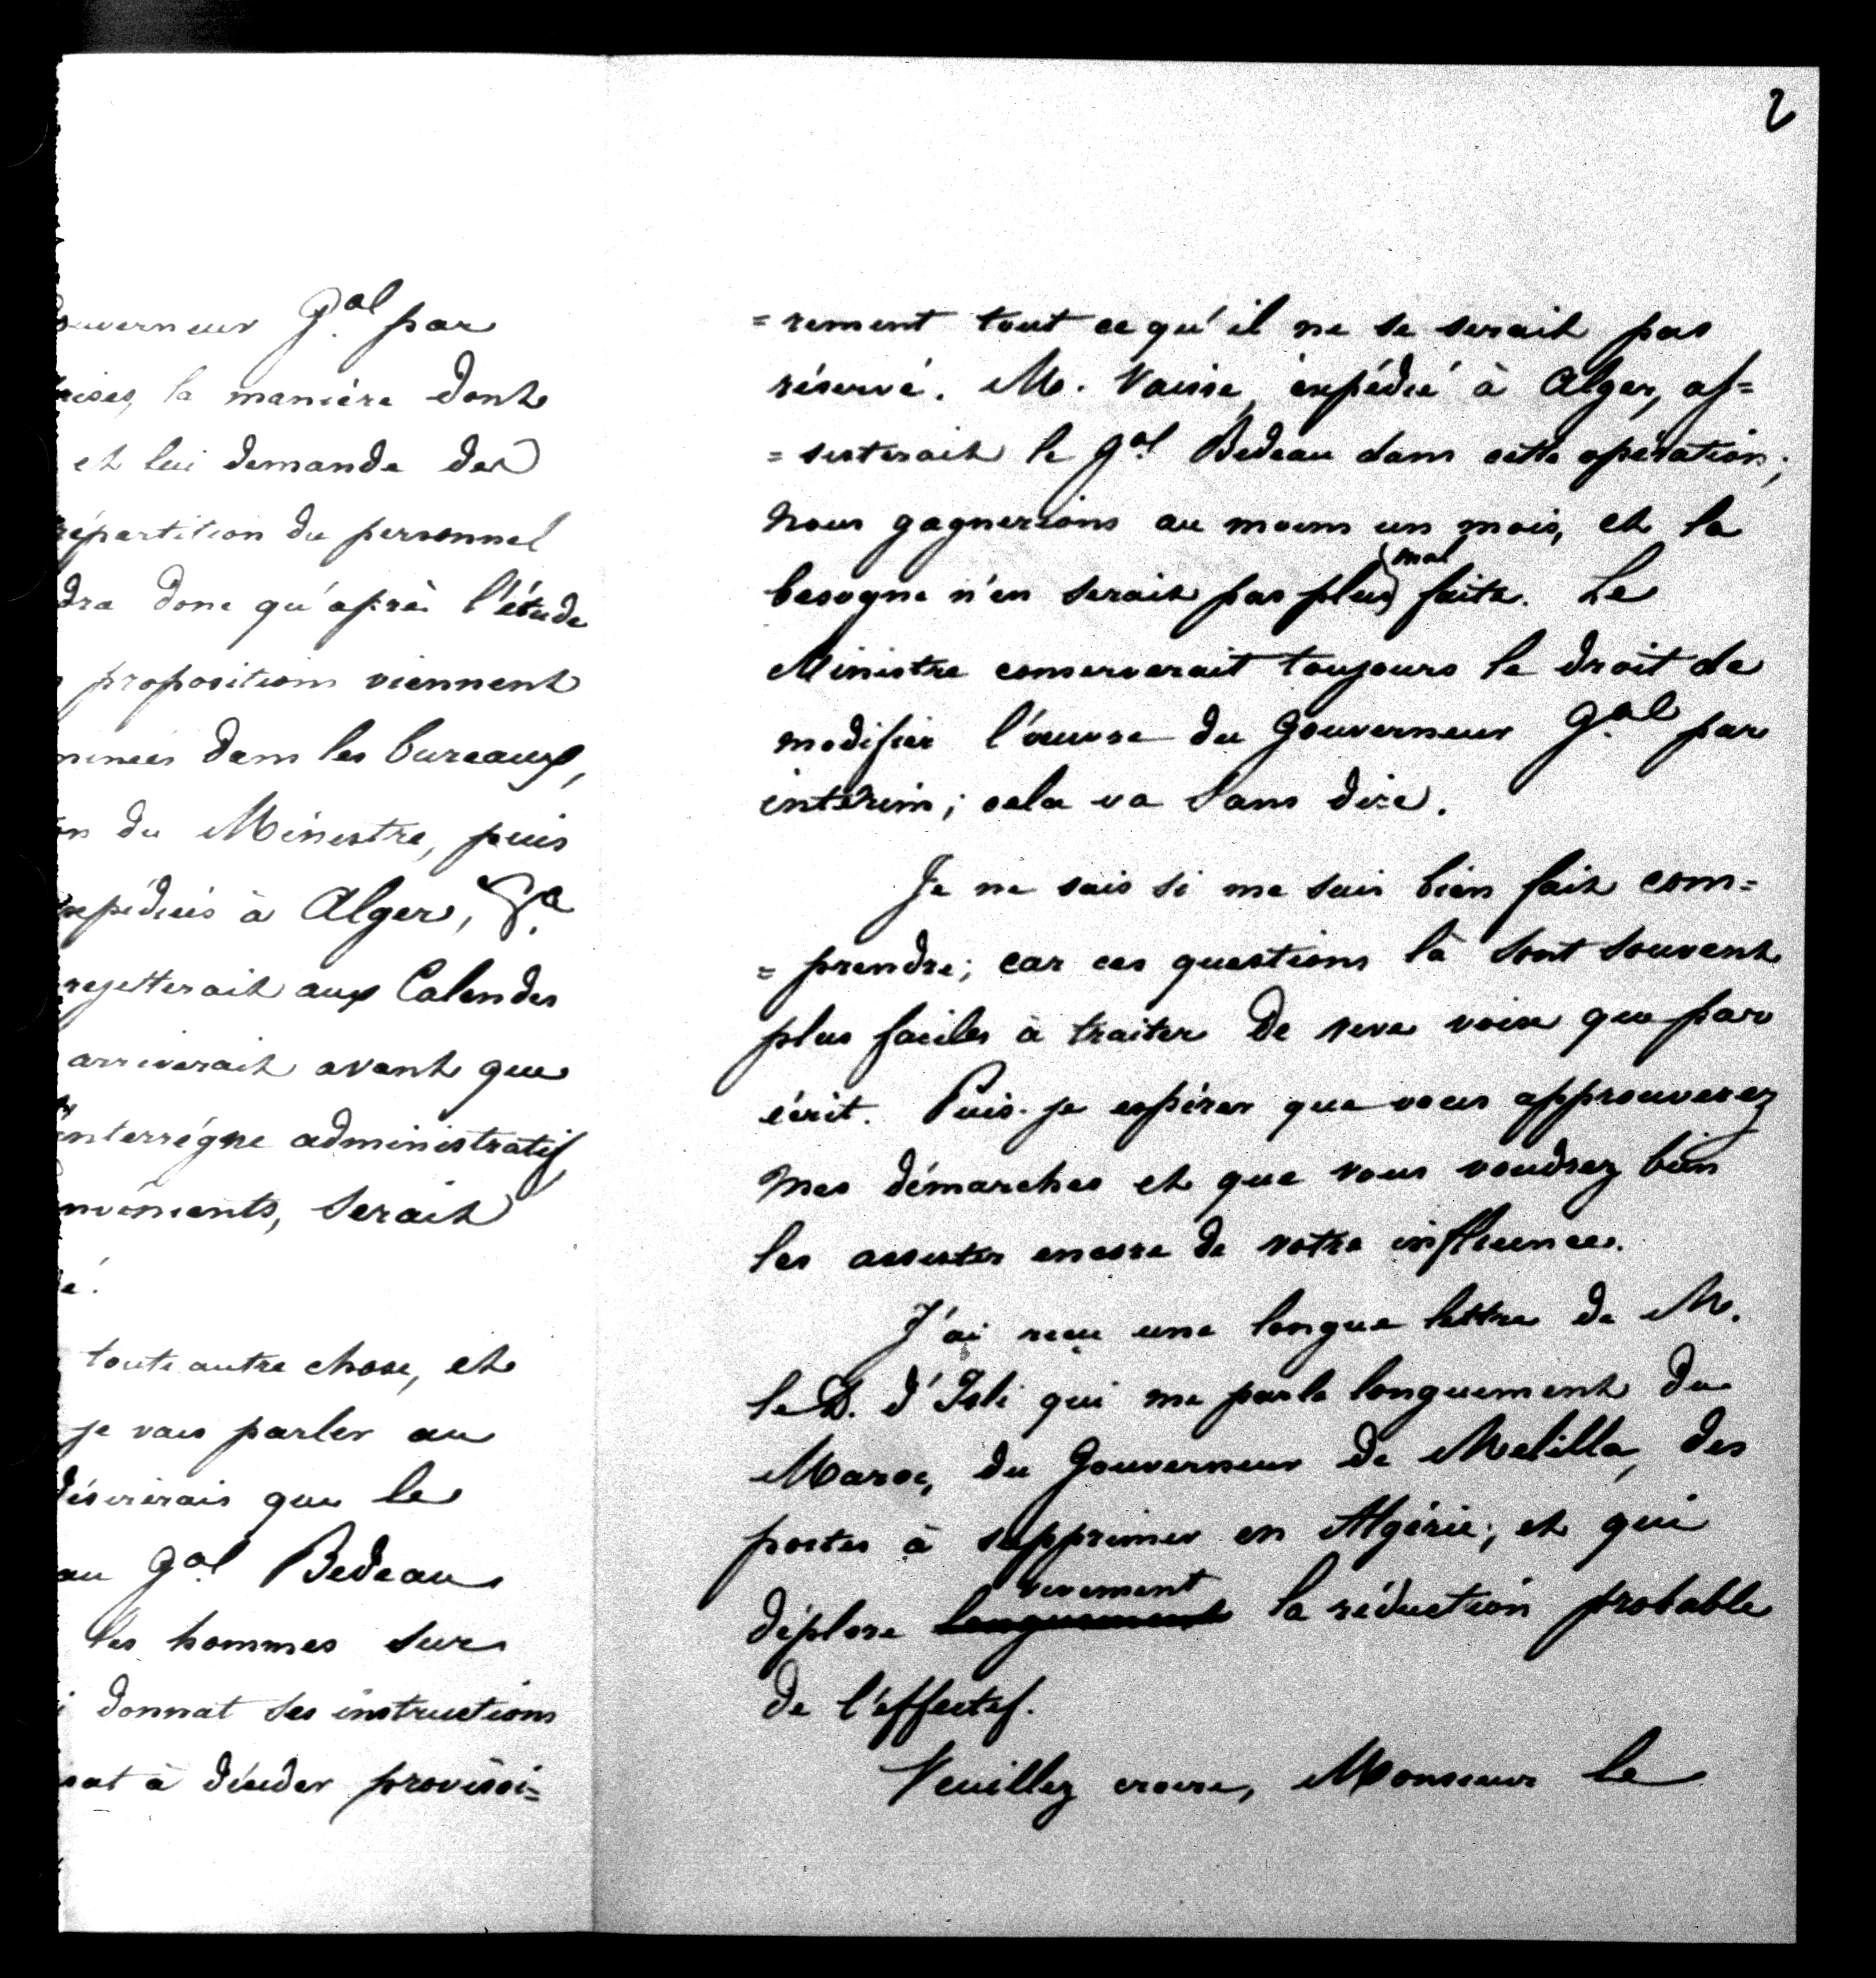 ouverneur G.al par
rises, la manière dont
et lui demande des
répartition du personnel
dra donc qu'après l'étude
proposition viennent
minées dans les bureaux,
on du Ministre, puis
expédiés à Alger, &.a
rejetterait aux Calendes
arriverait avant que
interrègne administratif
nvénients, serait
é.
toute autre chose, et
je vais parler au
désirerais que le
au G.al Bedeau
les hommes sur
i donnat ses instructions
sat à décider provisoi=
2
=rement tout ce qu'il ne se serait pas
réservé. M. Vaisse, expédié à Alger, as=
=sisterait le G.al Bedeau dans cette opération;
nous gagnerions au moins un mois, et la
mal
besogne n'en serait pas plus faite. Le
Ministre conserverait toujours le droit de
modifier l'œuvre du Gouverneur G.al par
intérim; cela va sans dire.
Je ne sais si me suis bien fait com=
=prendre; car ces questions là sont souvent
plus faciles à traiter de vive voix que par
écrit. Puis-je espérer que vous approuverez
mes démarches et que vous voudrez bien
les assister encore de votre influence.
J'ai reçu une longue lettre de M.
le D. d'Isli qui me parle longuement du
Maroc, du Gouverneur de Melilla, des
postes à supprimer en Algérie; et qui
vivement
déplore longuement la réduction probable
de l'effectif.
Veuillez croire, Monsieur le